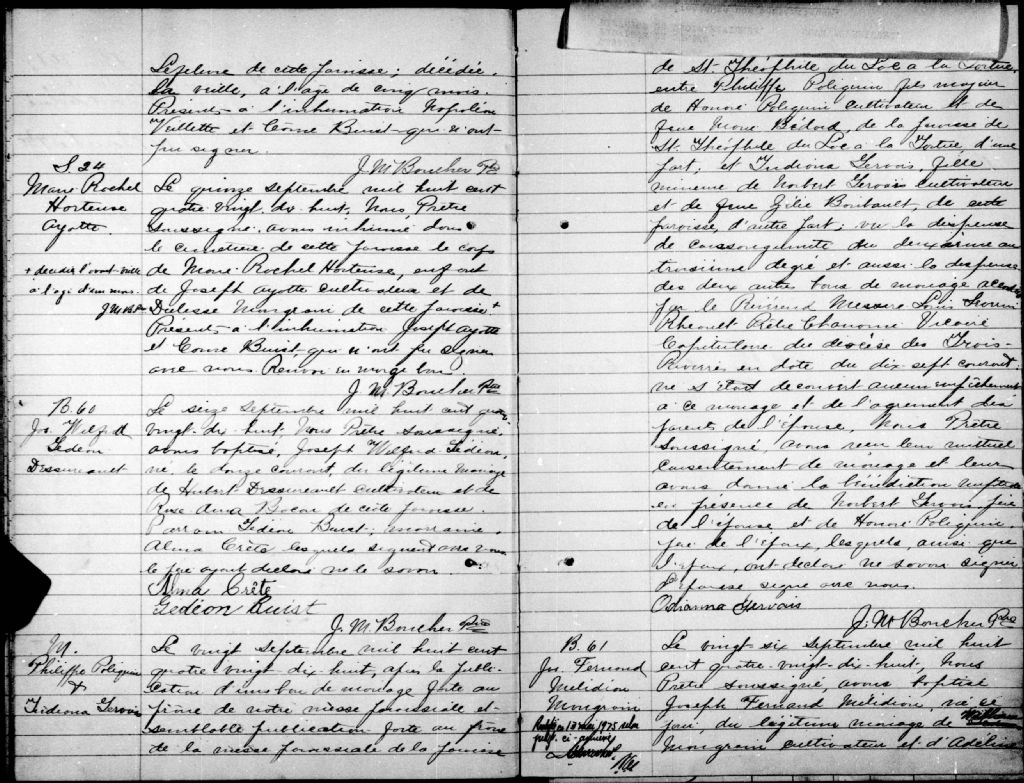 Lefebvre de cette Paroisse; décédée
la veille, à l'age de cinq mois.
Présents à l'inhumation Napoléon
Veillette et Come Buist qui n'ont
pu signer.
J. M. Boucher Ptre
S. 24
Marie Rachel
Hortense
Ayotte.
Le quinze septembre mil huit cent
quatre vingt dix huit, Nous, Prêtre
soussigné avons inhumé dans
le cimetière de cette Paroisse le corps
de Marie Rachel Hortense, enfant
de Joseph Ayotte cultivateur et de
Délesse Mongrain de cette Paroisse +
Présents à l'inhumation Joseph Ayotte
et Come Buist qui n'ont pu signer
avec nous. Renvoi en marge bon.
+ décédée l'avant-veille
à l'age d'un mois.
J. M. B. Ptre
J. M. Boucher Ptre
B. 60
Jos. Wilfrid
Gédéon
Dessureault
Le seize septembre mil huit cent quatre
vingt-dix-huit, Nous Prêtre soussigné,
avons baptisé, Joseph Wilfrid Gédéon,
né le douze courant, du légitime mariage
de Hubert Dessureault cultivateur et de
Rose Anna de cette Paroisse.
Parrain Gédéon Buist; marraine
Alma Crête lesquels signent avec nous
le père ayant déclaré ne le savoir.
Alma Crête
Gédéon Buist
J. M. Boucher Ptre
M.
Philippe Poliquin
&
Gervais
Le vingt septembre mil huit cent
quatre vingt-dix-huit, après la publi-
cation d'un ban de mariage faite au
prône de notre messe paroissiale et
semblable publication faite au prône
de la messe paroissiale de la Paroisse
de St. Théophile du Lac à la Tortue,
entre Philippe Poliquin fils majeur
de Honoré Poliquin cultivateur et de
feue Marie Bédard, de la paroisse de
St. Théophile du Lac à la Tortue, d'une
part; et Gervais, fille
mineure de Norbert Gervais cultivateur
et de feue Zélie Boutault, de cette
paroisse, d'autre part; vu la dispense
de consanguinité du deux au
troisième degré et aussi la dispense
des deux autres bans de mariage accordée
par le Révérend Messire Louis Séverin
Rheault Prêtre Chanoine Vicaire
Capitulaire du diocèse des Trois-
Rivières en date du dix sept courant
ne s'étant découvert aucun empêchement
à ce mariage et de l'agrément des
parents de l'épouse, Nous Prêtre
soussigné, avons reçu leur mutuel
consentement de mariage et leur
avons donné la bénédiction nuptiale
en présence de Norbert Gervais père
de l'épouse et de Honoré Poliquin
père de l'époux, lesquels, ainsi que
l'époux, ont déclaré ne savoir signer
L'épouse signe avec nous.
Gervais
J. M. Boucher Ptre
B. 61
Jos. Fernand
Mélidion
Mongrain
13 mai 1975 selon
ci-annexé
Le vingt-six septembre mil huit
cent quatre-vingt-dix-huit, Nous
Prêtre soussigné, avons baptisé
Joseph Fernand Mélidion, né ce
jour, du légitime mariage de
Mongrain cultivateur et d'Adéline